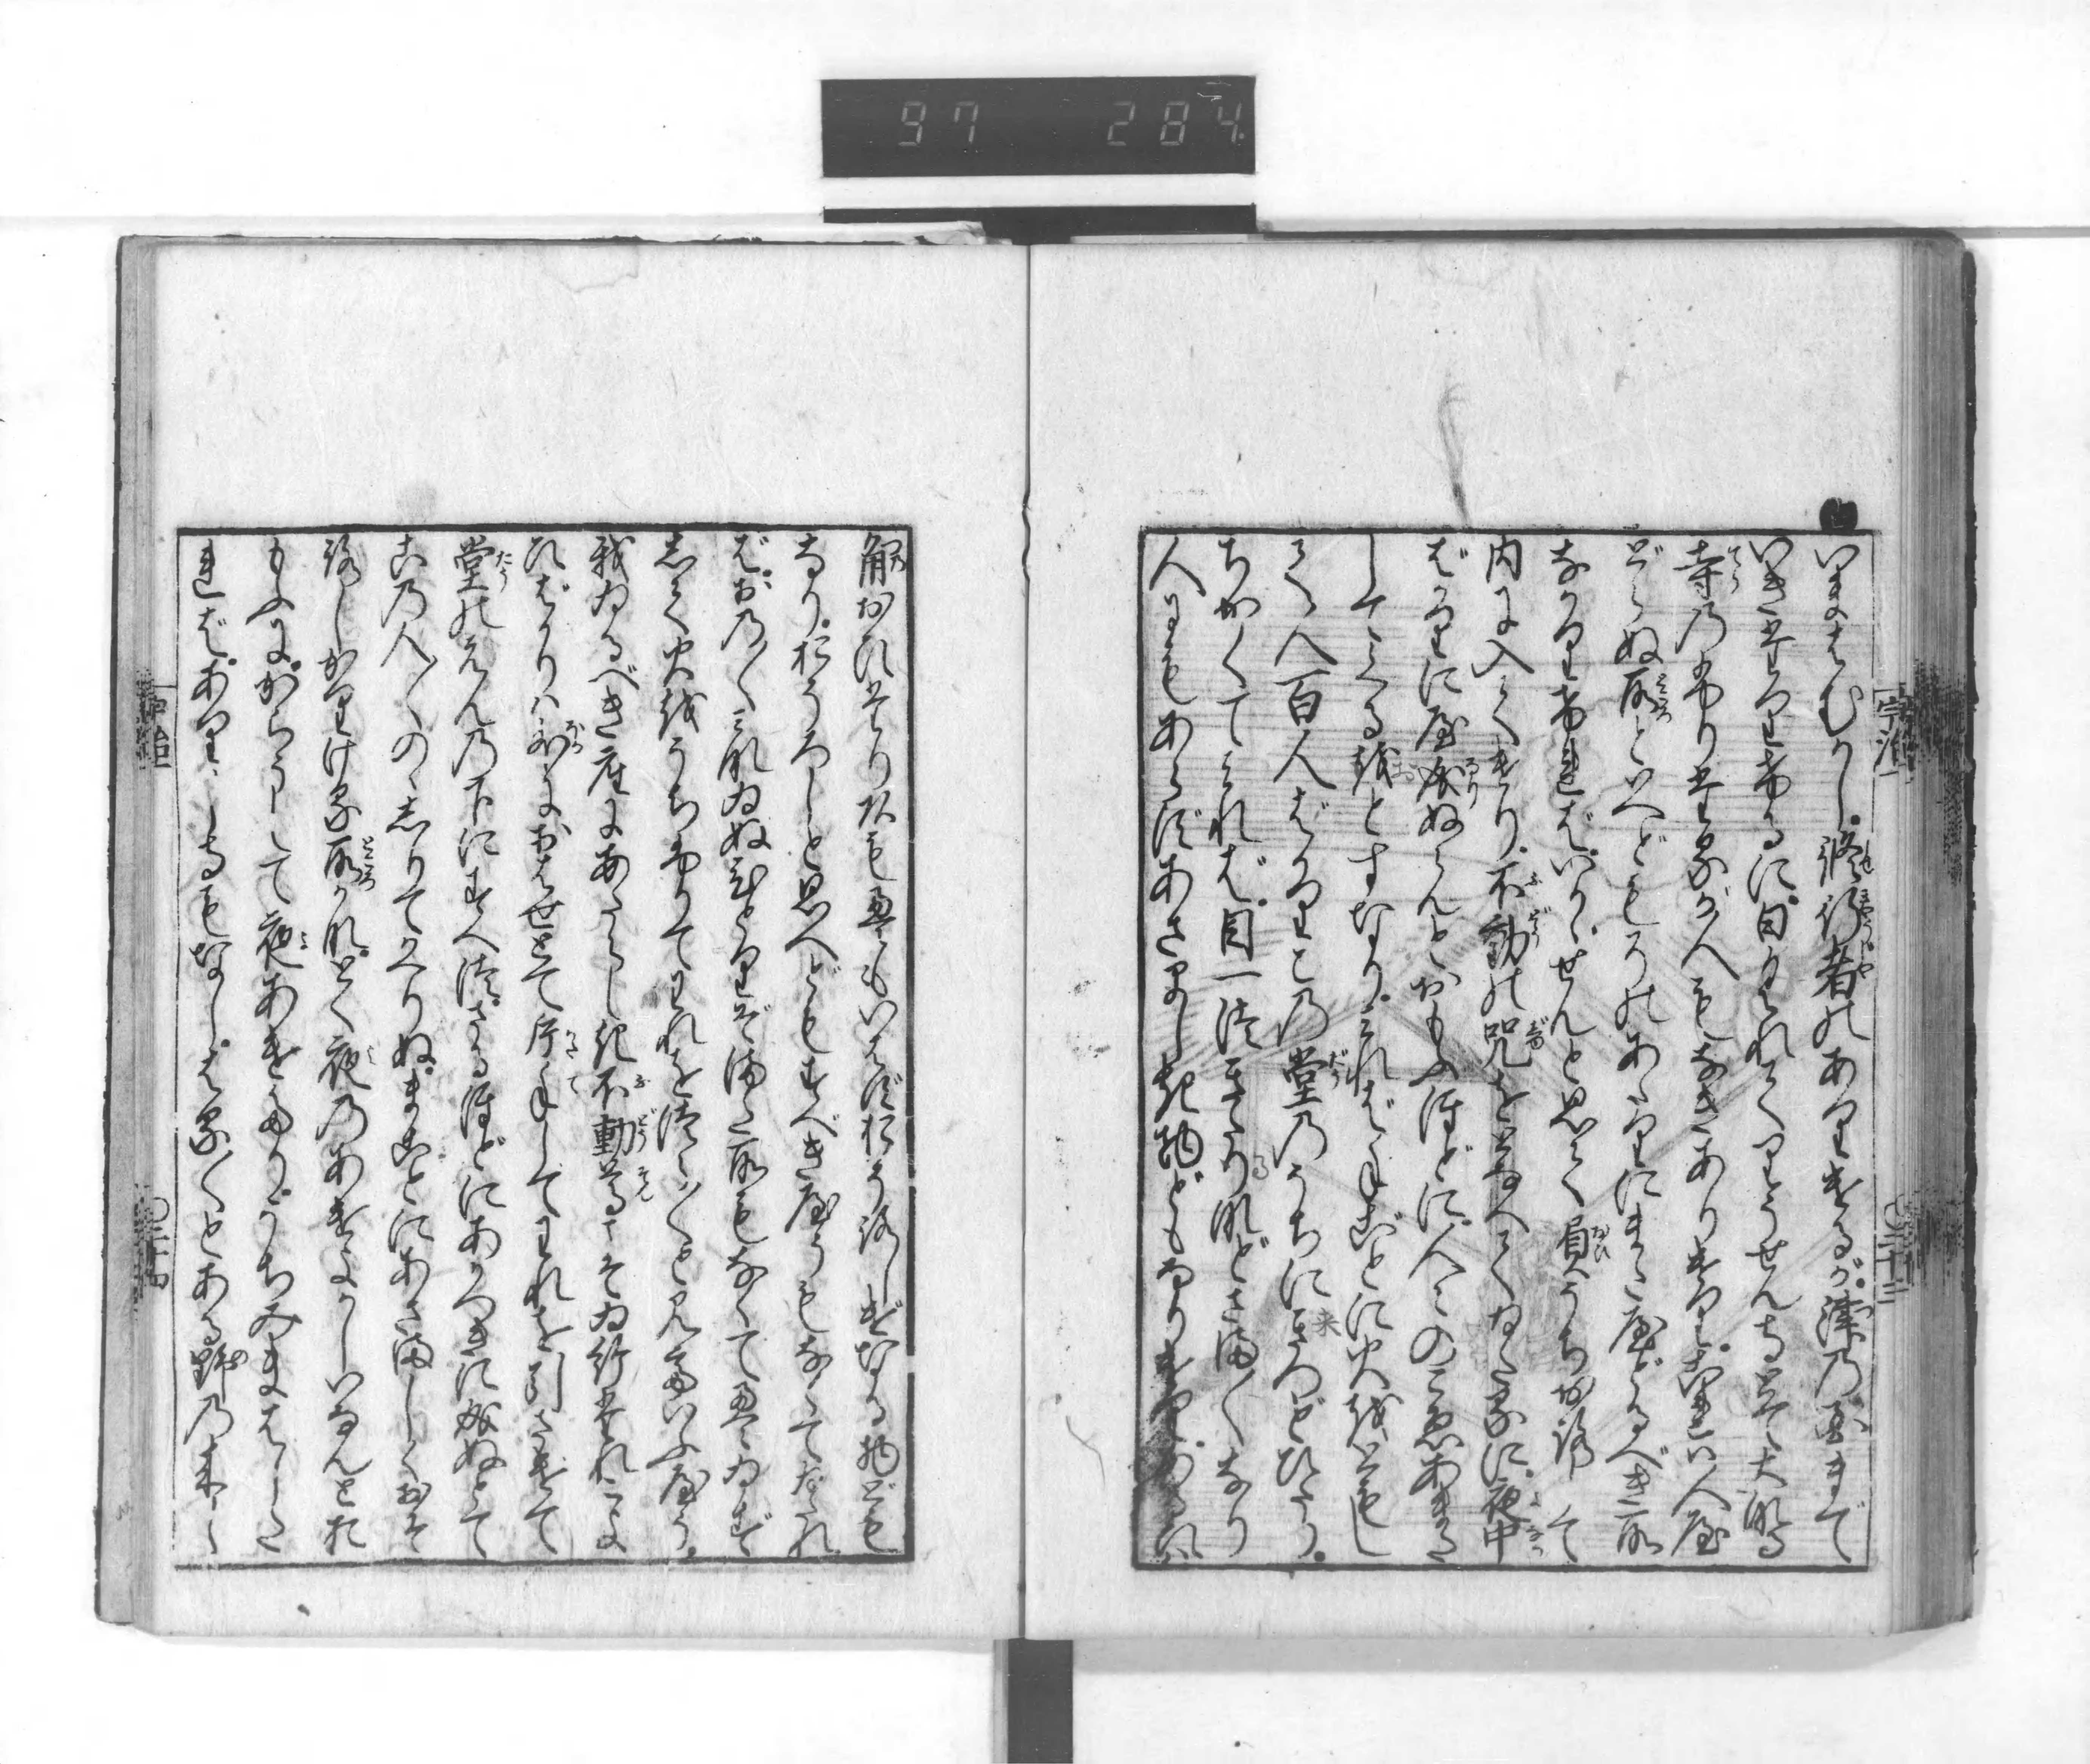 宇治一　〇三十三
いまはむかし修行者のありけるが津の国まで
いきたりけるに日くれてりうせんじとて大なる
寺のふりたるが人もなきありけりこれは人屋
どらぬ所といへどもそのあたりにまた屋どるべき所
なかりければいかゞせんと思て負うちおろして
内に入てけり不動の咒をとなへてゐたるに夜中
ばかりに屋成ぬらんとおもふほどに人〳〵のこゑあまた
してくるをとすなりみれば手ごとに火をともし
て人百人ばかりこの堂のうちにきつどひたり
ちかくてみれば目一つきたりなどさま〴〵なり
人にもあらずあさましき物どもなりけりあるひは
角おひたり頭もえもいはずおそろしげなる物ども
なりおそろしと思へどもすべき屋うもなくてゐたれ
ばおの〳〵みなゐぬひとりぞまた所もなくてえゐず
して火をうちふりてわれをつら〳〵と見ていふ屋う
我ゐるべき座にあたらしき不動尊こそゐ給たれこよ
ひばかりは外におはせとて片手してわれを引さげて
堂のえんの下にすへつさるほどにあかつきに成ぬとて
この人〳〵のゝしりてかへりぬまことにあさましくおそ
ろしかりける所かなとく夜のあけよかしいなんとお
もふにからうじて夜あけたりうちみまはした
ればありし寺もなしはる〴〵とある野の来し
宇治一　〇三十四